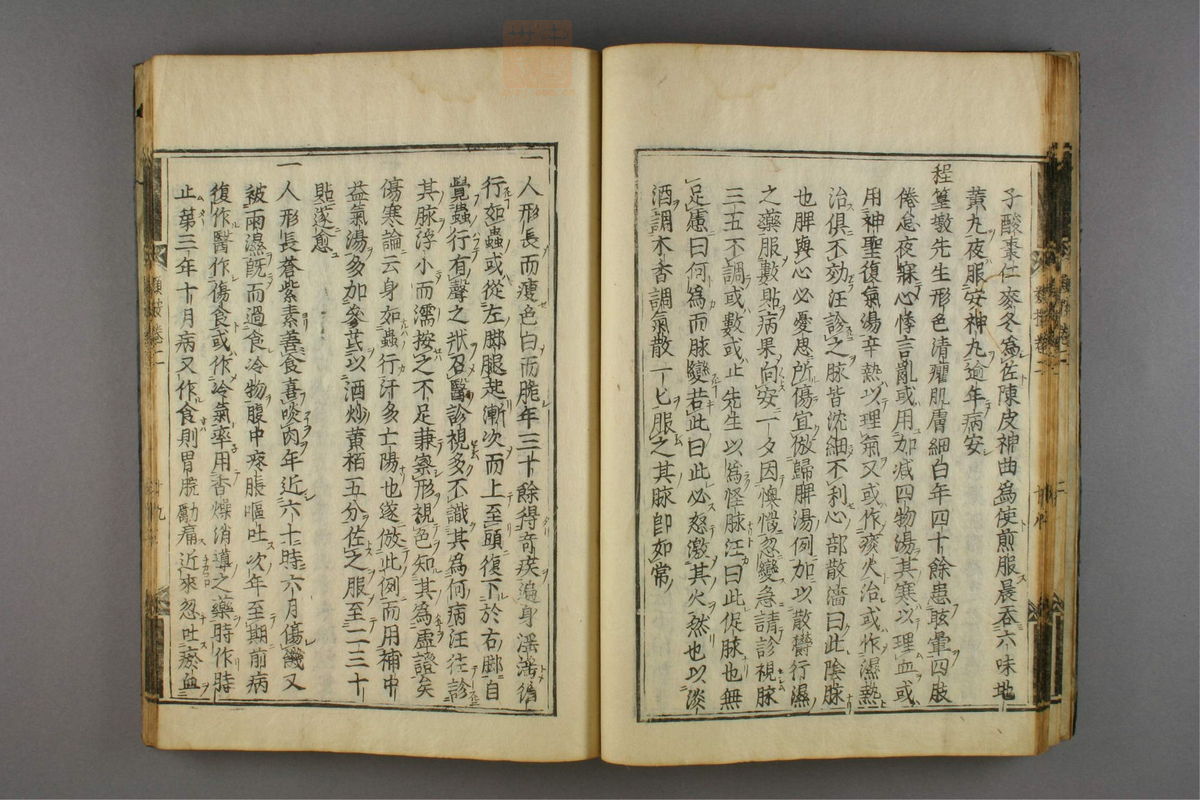 子酸棗仁麥冬爲佐陳皮神曲爲使煎服晨吞六味地
黃丸夜服安神丸逾年病安
程篁墩先生形色清癯肌膚細白年四十餘患眩暈四肢
倦怠夜寐心悸言亂或用加减四物湯其寒以理血或
用神聖復氣湯辛熱以理氣又或作痰火治或作濕熱
治俱不効汪診之脉皆沈細不利心部散濇曰此陰脉
也脾與心必憂思所傷宜倣歸脾湯例加以散欝行濕
之藥服數貼病果向安一夕因懊憹忽變急請診視脉
三五不調或數或止先生以爲怪脉汪曰此促脉也無
足慮曰何爲而脉變若此曰此必怒激其火然也以淡
酒調木香調氣散一匕服之其脉卽如常
一人形長而瘦色白而脆年三十餘得奇疾遍身淫淫循
行如蟲或從左脚腿起漸次而上至頭復下於右脚自
覺蟲行有聲之狀召醫診視多不識其爲何病汪往診
其脉浮小而濡按之不足兼察形視色知其爲虛證矣
傷寒論云身如蟲行汗多亡陽也遂倣此例而用補中
益氣湯多加參芪以酒炒黃栢五分佐之服至二三十
貼遂愈
一人形長蒼紫素善食喜啖肉年近六十時六月傷饑又
被雨濕旣而過食冷物腹中疼脹嘔吐次年至期前病
復作醫作傷食或作冷氣率用香燥消導之藥時作時
止第三年十月病又作食則胃脘勵痛近來忽吐瘀血
卷二
十九